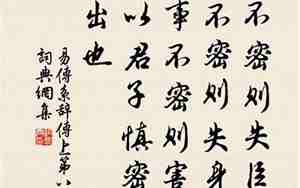 不密則失臣
不密則失身
事不密則害
以君子慎密
出也
易傳系辭傳上第八
詞典網集